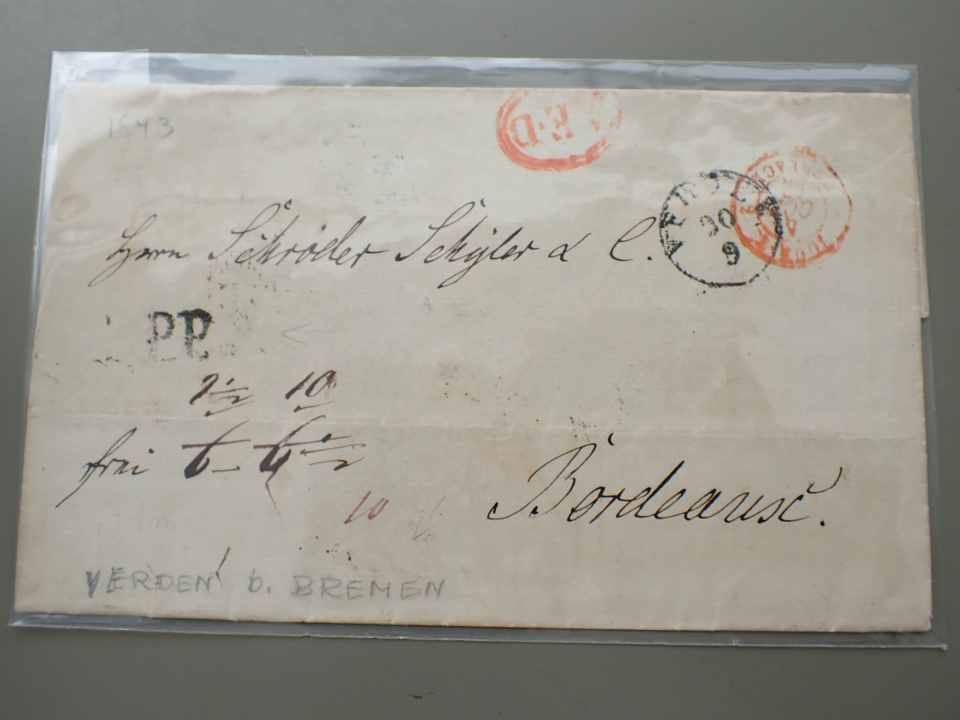 1843
P.D
VERDEN
30
9
Herrn Schröder Schÿler & C.
P.P.
7½ 10
frei 6
10
Bordeaux.
VERDEN b. BREMEN